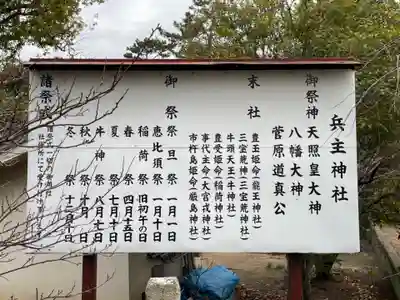 兵主神社
御祭神 天照皇大神
八幡大神
菅原道真公
末社
豊玉姫命(龍王神社)
三宝荒神(三宝荒神社)
牛頭天王(牛神社)
豊受姫命(稲荷神社)
事代主命(大宮戎神社)
市杵島姫命(厳島神社)
御祭
祭旦祭 一月一日
恵比須祭 一月十日
稲荷祭 旧初午の日
春祭 四月十五日
夏祭 七月十日
牛神祭 八月七日
秋祭 十月
冬祭 十二月十日
諸祭式